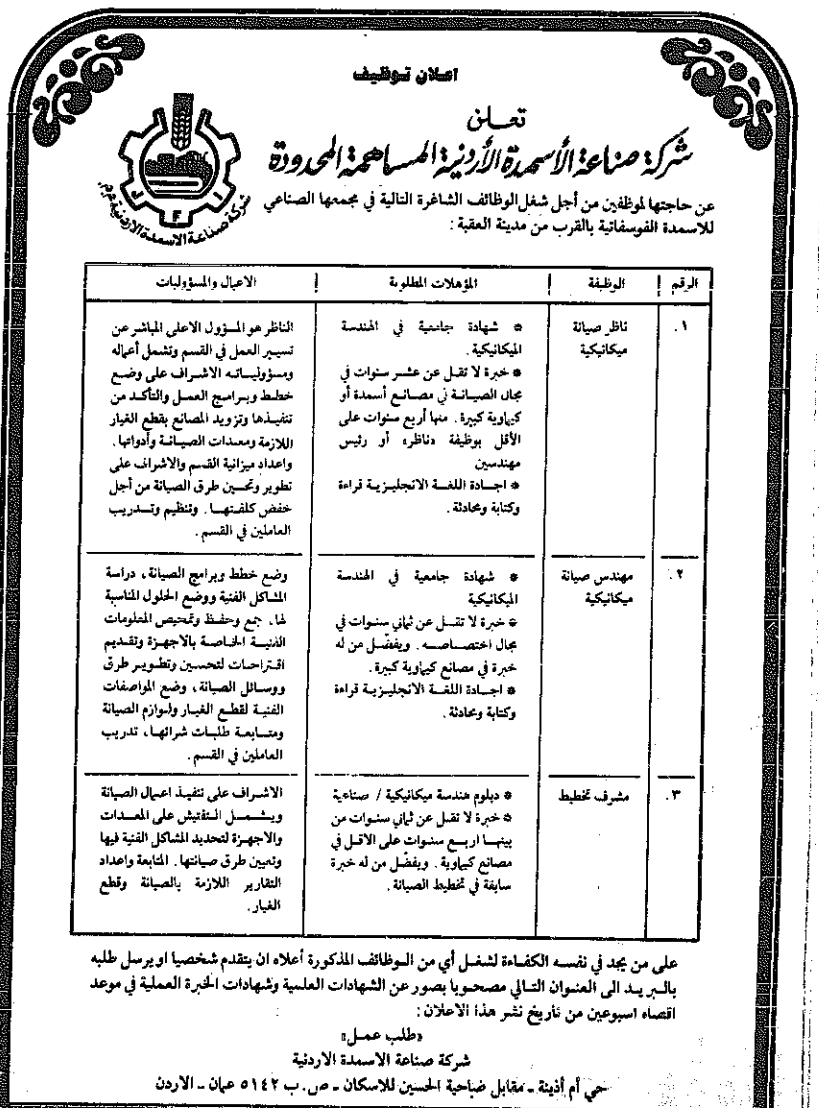 اعلان توظيف
تعلن
شركة صناعة الأسمدة الأردنية المساهمة المحدودة
شركة صناعة الاسمدة الاردنية م.ع.م
J F I
عن حاجتها لموظفين من أجل شغل الوظائف الشاغرة التالية في مجمعها الصناعي
للاسمدة الفوسفاتية بالقرب من مدينة العقبة :
الرقم
الوظيفة
المؤهلات المطلوبة
الاعمال والمسؤوليات
١ .
ناظر صيانة
ميكانيكية
* شهادة جامعية في الهندسة
الميكانيكية .
* خبرة لا تقل عن عشر سنوات في
مجال الصيانة في مصانع أسمدة أو
كيماوية كبيرة . منها أربع سنوات على
الأقل بوظيفة «ناظر» أو رئيس
مهندسين
* اجادة اللغة الانجليزية قراءة
وكتابة ومحادثة .
الناظر هو المسؤول الاعلى المباشر عن
تسيير العمل في القسم وتشمل أعماله
ومسؤولياته الاشراف على وضع
خطط وبرامج العمل والتأكد من
تنفيذها وتزويد المصانع بقطع الغيار
اللازمة ومعدات الصيانة وأدواتها .
واعداد ميزانية القسم والاشراف على
تطوير وتحسين طرق الصيانة من أجل
خفض كلفتها . وتنظيم وتدريب
العاملين في القسم .
٢ .
مهندس صيانة
ميكانيكية
* شهادة جامعية في الهندسة
الميكانيكية
* خبرة لا تقل عن ثماني سنوات في
مجال اختصاصه . ويفضّل من له
خبرة في مصانع كيماوية كبيرة .
* اجادة اللغة الانجليزية قراءة
وكتابة ومحادثة .
وضع خطط وبرامج الصيانة ، دراسة
المشاكل الفنية ووضع الحلول المناسبة
لها . جمع وحفظ وتمحيص المعلومات
الفنية الخاصة بالاجهزة وتقديم
اقتراحات لتحسين وتطوير طرق
ووسائل الصيانة ، وضع المواصفات
الفنية لقطع الغيار ولوازم الصيانة
ومتابعة طلبات شرائها ، تدريب
العاملين في القسم .
٣ .
مشرف تخطيط
* دبلوم هندسة ميكانيكية / صناعية
* خبرة لا تقل عن ثماني سنوات من
بينها اربع سنوات على الاقل في
مصانع كيماوية . ويفضّل من له خبرة
سابقة في تخطيط الصيانة .
الاشراف على تنفيذ اعمال الصيانة
ويشمل التفتيش على المعدات
والاجهزة لتحديد المشاكل الفنية فيها
وتعيين طرق صيانتها . المتابعة واعداد
التقارير اللازمة بالصيانة وقطع
الغيار .
على من يجد في نفسه الكفاءة لشغل أي من الوظائف المذكورة أعلاه ان يتقدم شخصيا او يرسل طلبه
بالبريد الى العنوان التالي مصحوبا بصور عن الشهادات العلمية وشهادات الخبرة العملية في موعد
اقصاه اسبوعين من تأريخ نشر هذا الاعلان :
«طلب عمل»
شركة صناعة الاسمدة الاردنية
حي أم أذينة ـ مقابل ضاحية الحسين للاسكان ـ ص . ب ٥١٤٢ عمان ـ الاردن